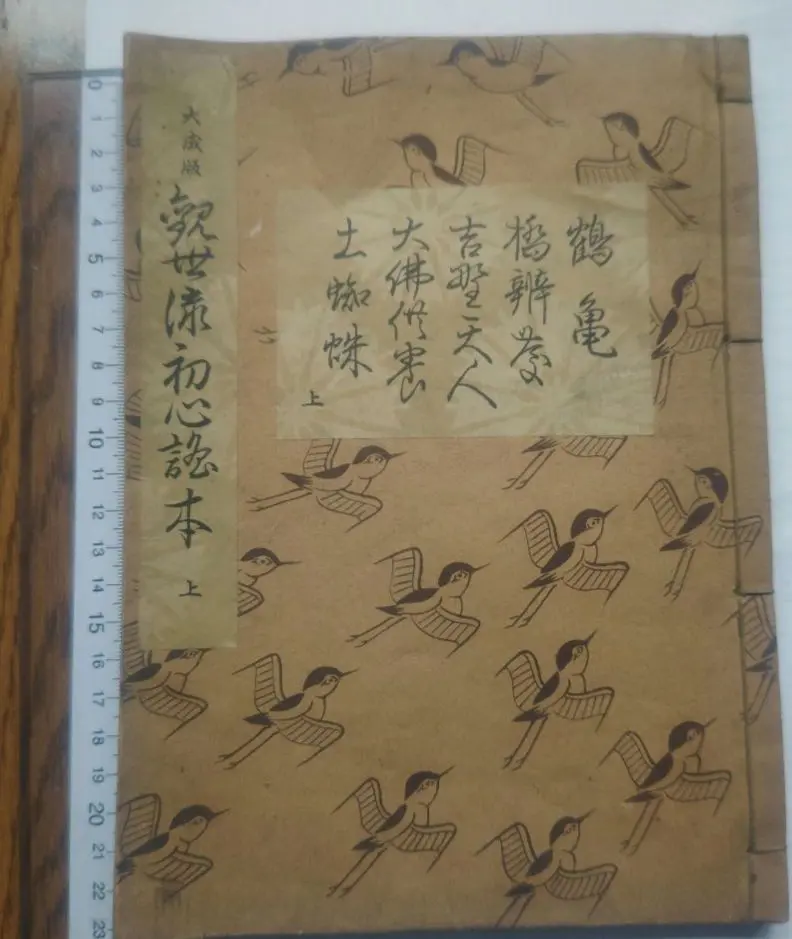 大成版
觀世流初心謠本 上
鶴亀
橋辨慶
吉野天人
大佛供養
土蜘蛛
上
0 1 2 3 4 5 6 7 8 9 10 11 12 13 14 15 16 17 18 19 20 21 22 23